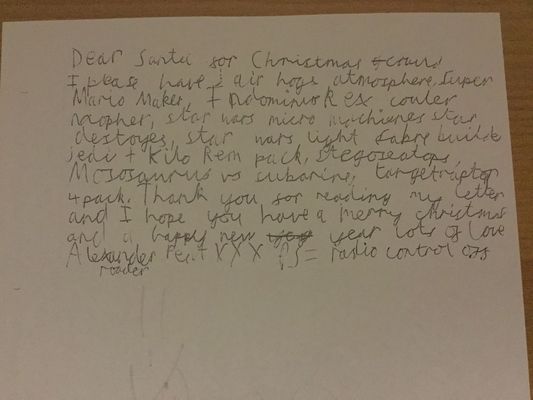 Dear Santa for Christmas could
I please have air hogs atmosphere, Super
Mario Maker, Indominus Rex couler
mopher, star wars micro machienes star
destoyes, star wars light sabre builde
jedi + Kilo Ren pack, Stegoseatops,
Mososaurus vs subarine, target raptor
4 pack. Thank you for reading my letter
and I hope you have a merry christmas
and a happy new year lots of love
Alexander XXX PS = radio control off
roader